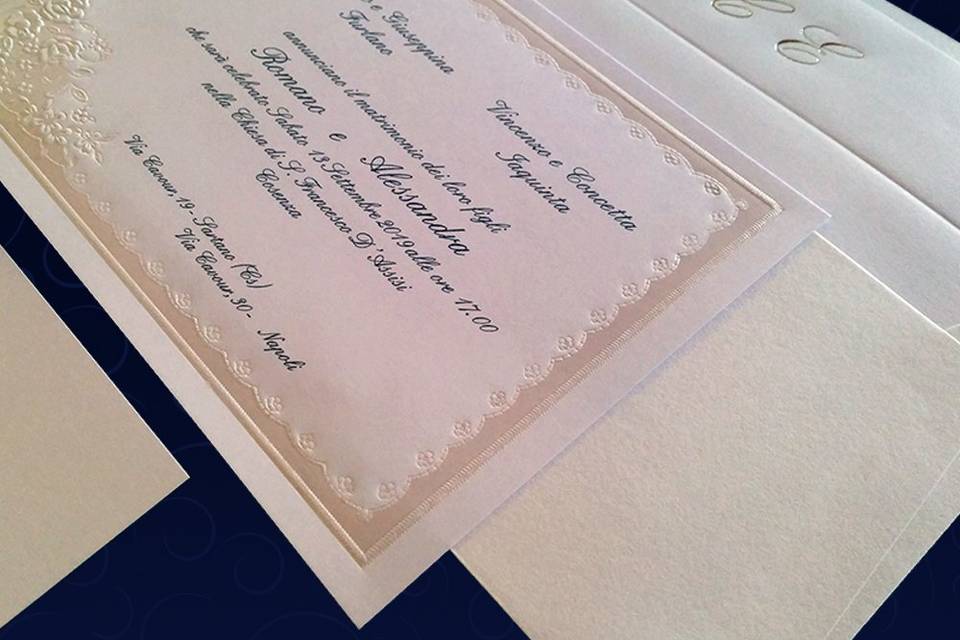 e Giuseppina
Furlano
Vincenzo e Concetta
Iaquinta
annunciano il matrimonio dei loro figli
Romano e Alessandra
che sarà celebrato Sabato 13 Settembre 2019 alle ore 17.00
nella Chiesa di S. Francesco D'Assisi
Cosenza
Via Cavour 19- Sartano (Cs)
Via Cavour, 30- Napoli